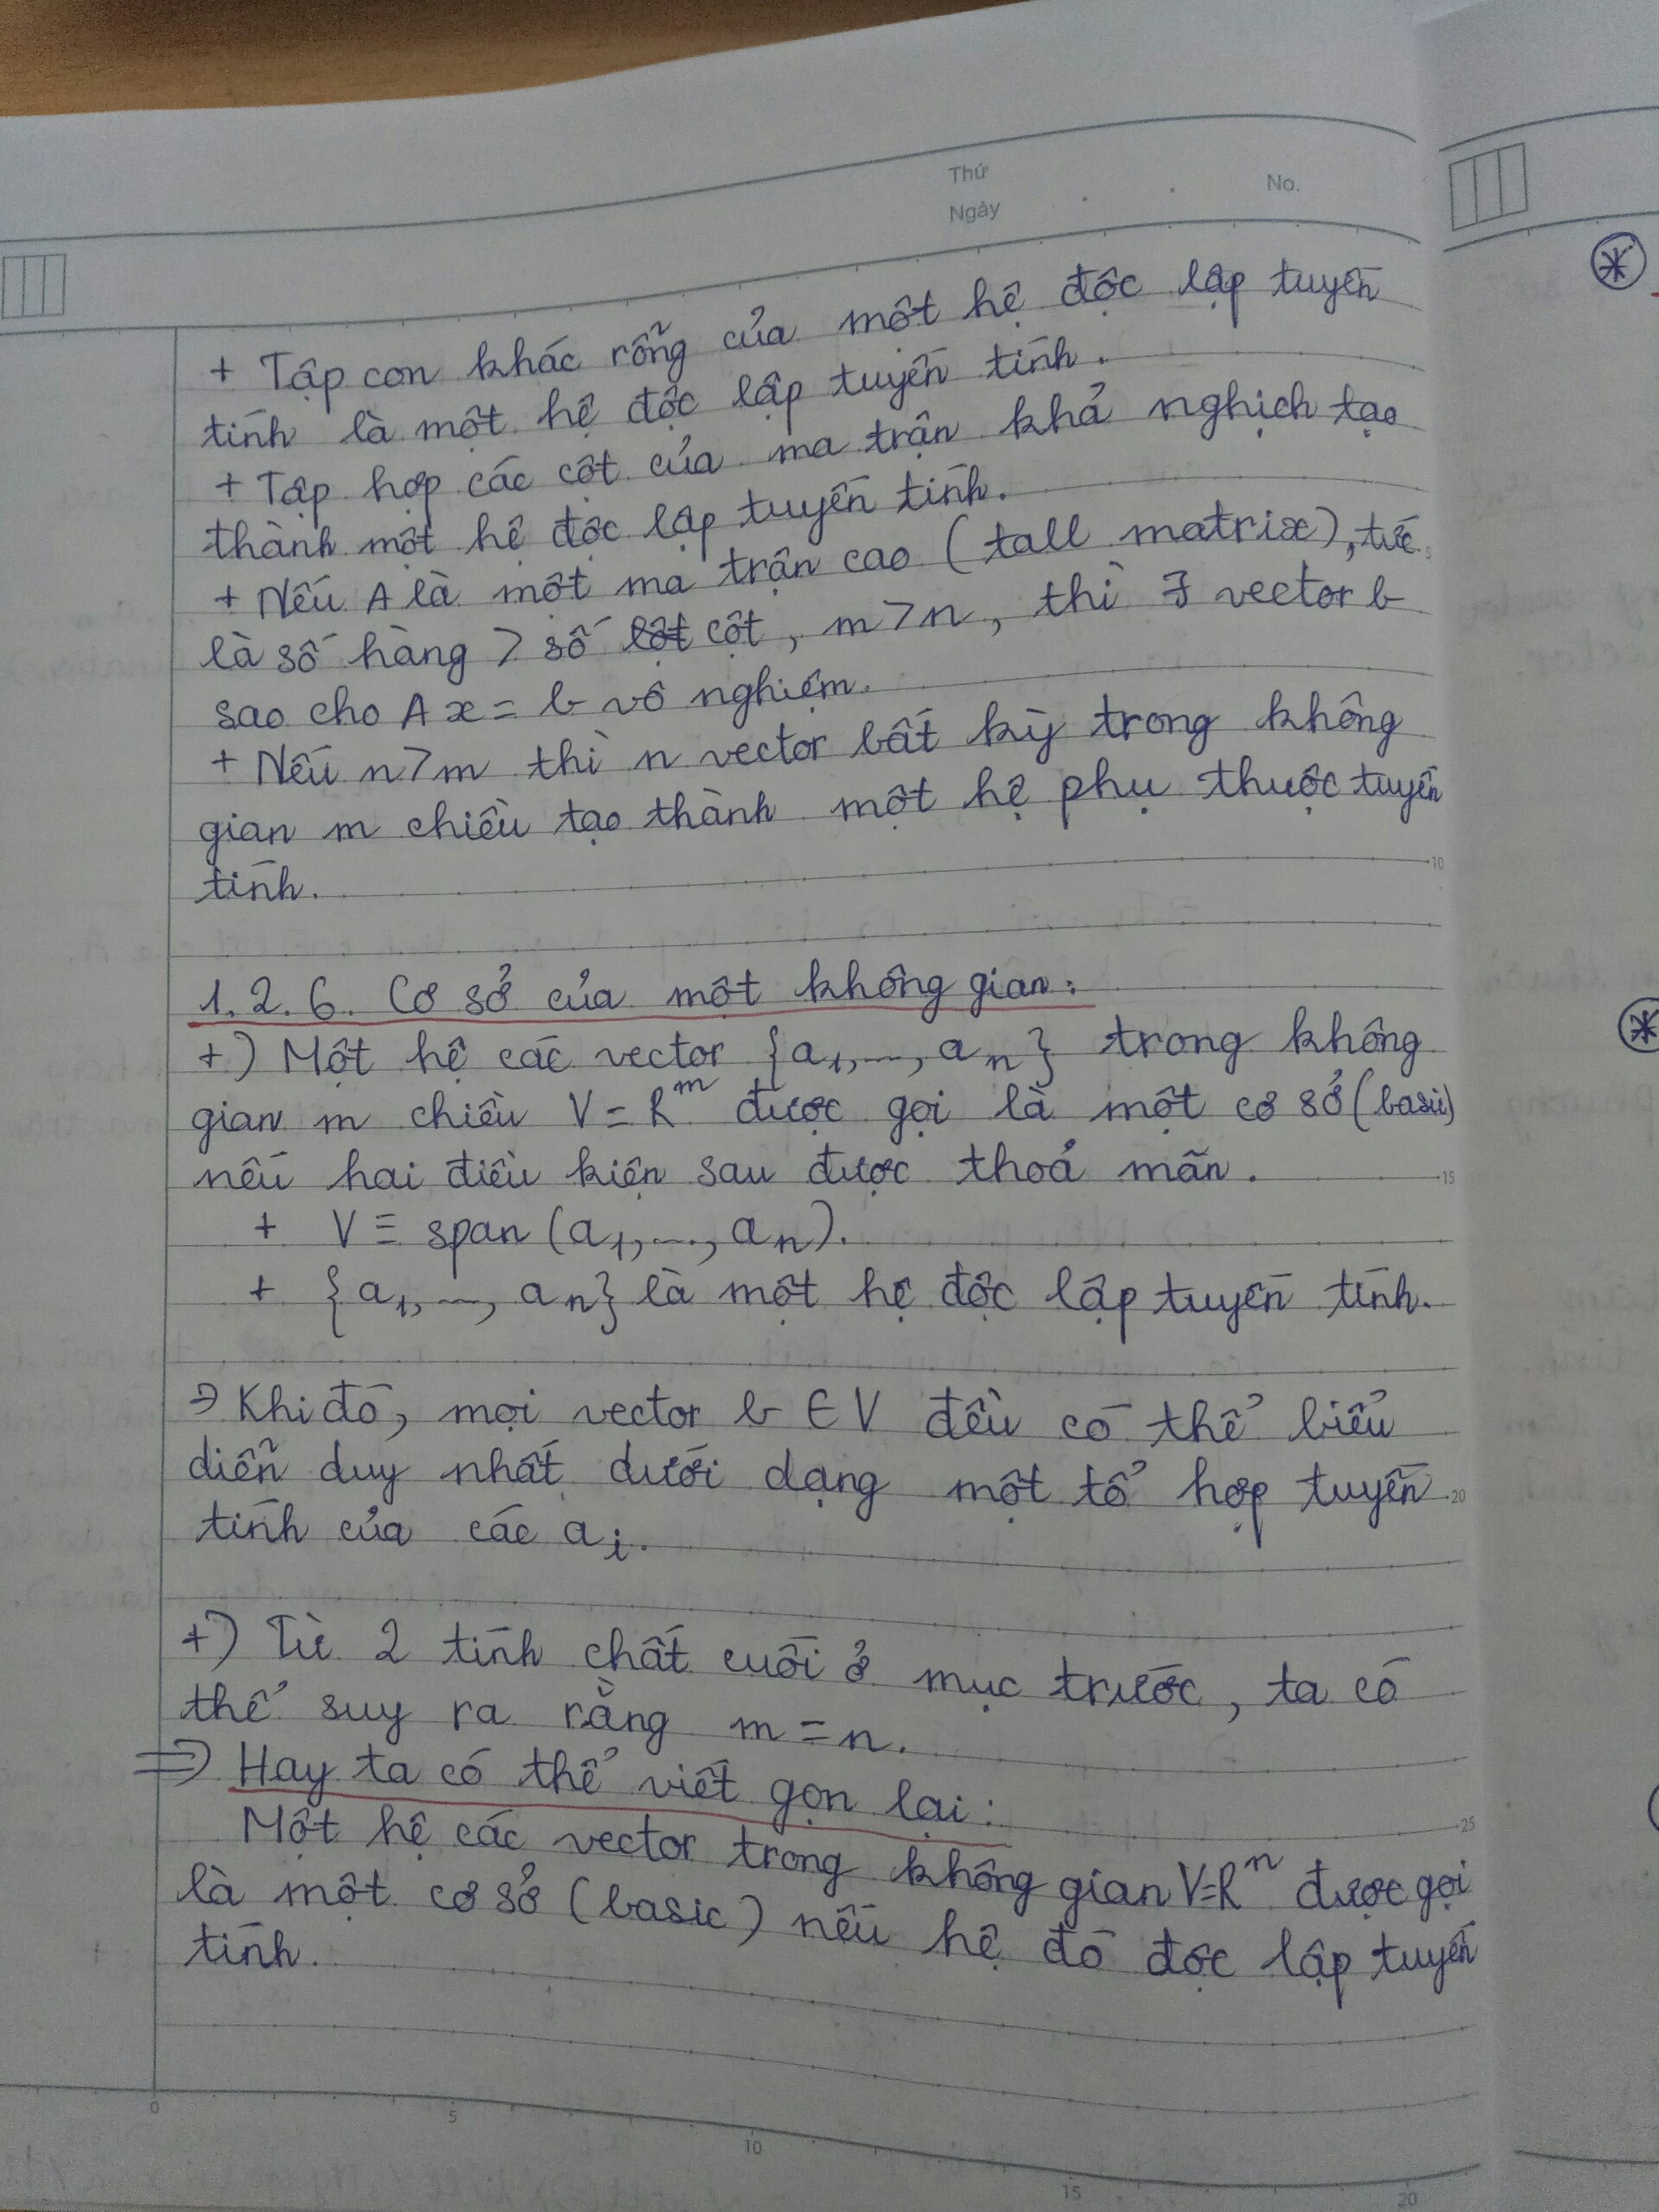 Thứ
Ngày
No.
+ Tập con khác rỗng của một hệ độc lập tuyến
tính là một hệ độc lập tuyến tính.
+ Tập hợp các cột của ma trận khả nghịch tạo
thành một hệ độc lập tuyến tính.
+ Nếu A là một ma trận cao (tall matrix), tức
là số hàng > số cột, m > n, thì ∃ vector b
sao cho Ax = b vô nghiệm.
+ Nếu n > m thì n vector bất kỳ trong không
gian m chiều tạo thành một hệ phụ thuộc tuyến
tính.
1.2.6. Cơ sở của một không gian:
+) Một hệ các vector {a₁,...,aₙ} trong không
gian m chiều V = Rᵐ được gọi là một cơ sở (basic)
nếu hai điều kiện sau được thoả mãn.
+ V ≡ span (a₁,...,aₙ).
+ {a₁,...,aₙ} là một hệ độc lập tuyến tính.
⇒ Khi đó, mọi vector b ∈ V đều có thể biểu
diễn duy nhất dưới dạng một tổ hợp tuyến
tính của các aᵢ.
+) Từ 2 tính chất cuối ở mục trước, ta có
thể suy ra rằng m = n.
⇒ Hay ta có thể viết gọn lại:
Một hệ các vector trong không gian V=Rⁿ được gọi
là một cơ sở (basic) nếu hệ đó độc lập tuyến
tính.
0 5 10 15 20